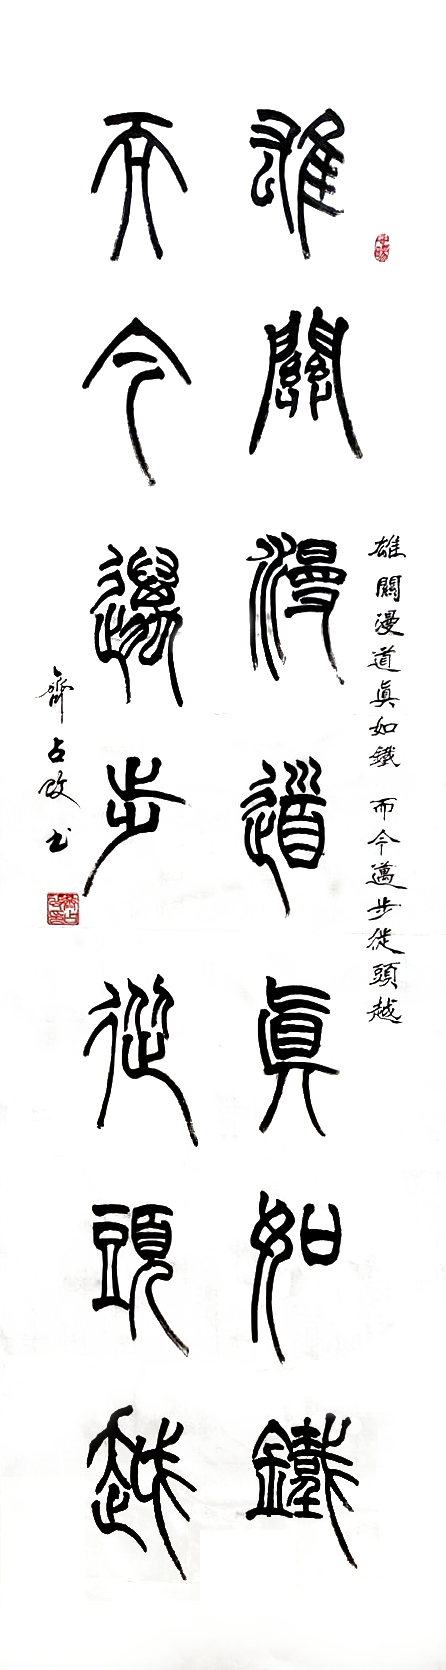 雄關漫道眞如鐵 而今邁步從頭越
雄關漫道眞如鐵
而今邁步從頭越
齊占 书